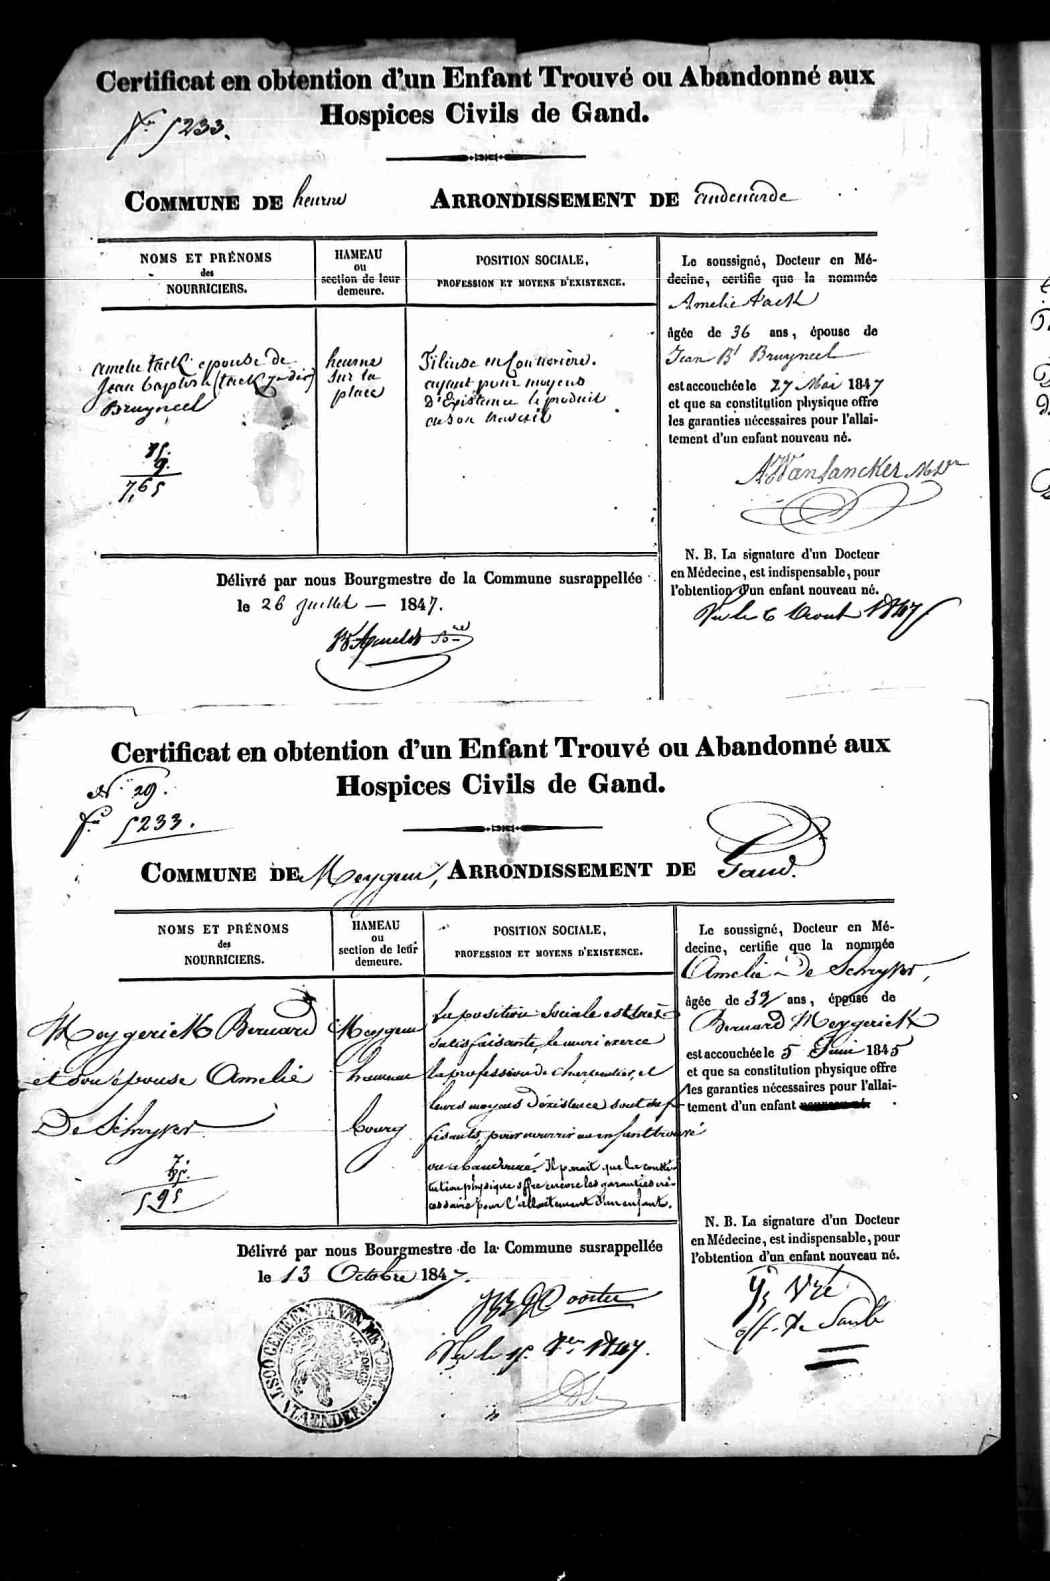 Certificat en obtention d'un Enfant Trouvé ou Abandonné aux
Hospices Civils de Gand.
5233.
COMMUNE DE heurne ARRONDISSEMENT DE audenarde
NOMS ET PRÉNOMS
des
NOURRICIERS.
HAMEAU
ou
section de leur
demeure.
POSITION SOCIALE,
PROFESSION ET MOYENS D'EXISTENCE.
amelie tack epouse de
Jean baptiste
Bruyneel
85.
9.
7,65
heurne
Sur la
place
fileuse en Couturière.
ayant pour moyens
d'Existence le produit
de son travail
Le soussigné, Docteur en Mé-
decine, certifie que la nommée
Amelie tack
âgée de 36 ans, épouse de
Jean Bt Bruyneel
est accouchée le 27 Mai 1847
et que sa constitution physique offre
les garanties nécessaires pour l'allai-
tement d'un enfant nouveau né.
N. B. La signature d'un Docteur
en Médecine, est indispensable, pour
l'obtention d'un enfant nouveau né.
Vu le 6 Aout 1847
Délivré par nous Bourgmestre de la Commune susrappellée
le 26 juillet 1847.
Certificat en obtention d'un Enfant Trouvé ou Abandonné aux
Hospices Civils de Gand.
N° 29.
5233.
COMMUNE DE Meygem, ARRONDISSEMENT DE Gand.
NOMS ET PRÉNOMS
des
NOURRICIERS.
HAMEAU
ou
section de leur
demeure.
POSITION SOCIALE,
PROFESSION ET MOYENS D'EXISTENCE.
Meygerick Bernard
et son épouse Amelie
De Schryver
5 95
Meygem
hameau
bourg
La position sociale est très-
satisfaisante, le mari exerce
la profession de charpentier, et
leurs moyens d'existence sont suf-
fisants, pour nourrir un enfant trouvé
ou abandonné. Il parait que la consti-
tution physique offre encore les garanties né-
cessaires pour l'allaitement d'un enfant.
Le soussigné, Docteur en Mé-
decine, certifie que la nommée
Amelie De Schryver,
âgée de 32 ans, épouse de
Bernard Meygerick
est accouchée le 5 Juin 1845
et que sa constitution physique offre
les garanties nécessaires pour l'allai-
tement d'un enfant nouveau né.
N. B. La signature d'un Docteur
en Médecine, est indispensable, pour
l'obtention d'un enfant nouveau né.
off. de Santé
Délivré par nous Bourgmestre de la Commune susrappellée
le 13 Octobre 1847.